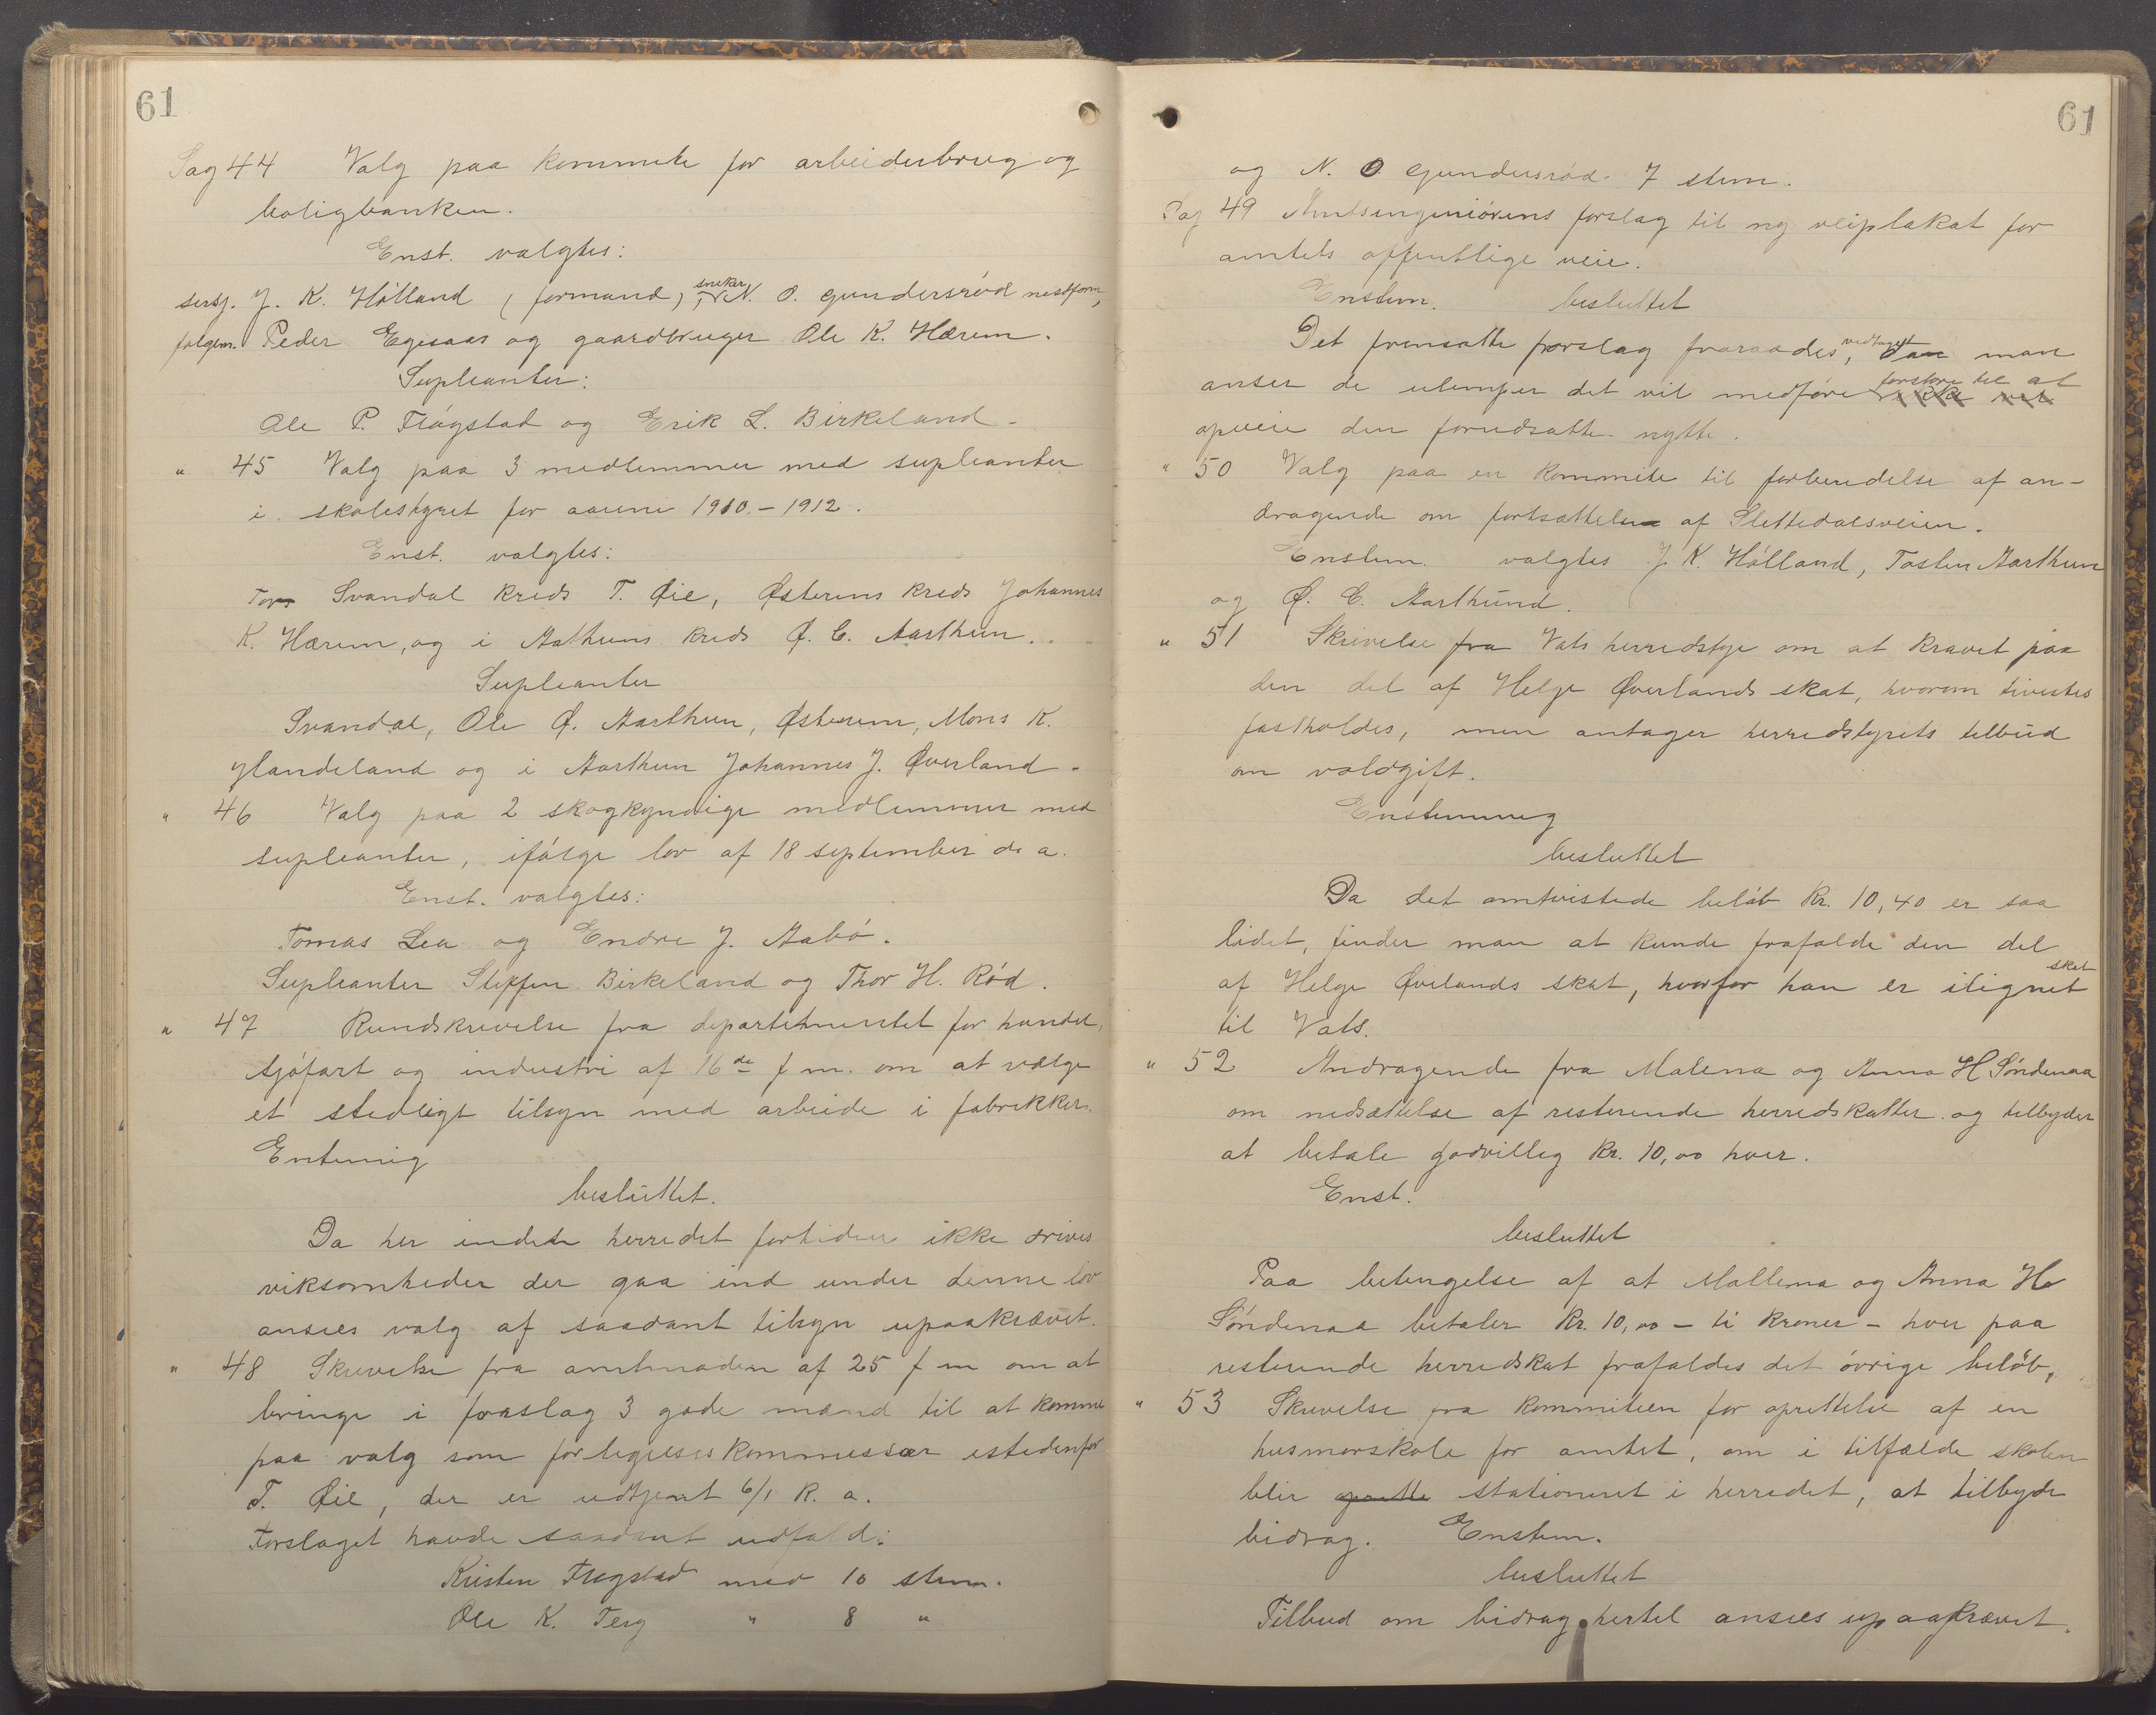 61
Sag 44 Valg paa kommite for arbeiderbrug og
boligbanken.
Enst. valgtes:
sersj. J. K. Hölland (formand, snekker N. O. Gundersröd nestform,
følgem. Peder Egesaas og gaardbruger Ole K. Hærem.
Supleanter:
Ole P. Flögstad og Erik L. Birkeland.
" 45 Valg paa 3 medlemmer med supleanter
i skolestyret for aarene 1910-1912.
Enst. valgtes:
For Svandal kreds T. Øie, Østerens kreds Johannes
K. Hærem, og i Aathuns kreds Ø. E. Aarthun.
Supleanter
Svandal, Ole Ø. Aarthun, Østerem, Mons K.
Ylandeland og i Aarthun Johannes J. Øverland.
" 46 Valg paa 2 skogkyndige medlemmer med
supleanter, ifölge lov af 18 september d. a.
Enst. valgtes:
Tomas Lea og Endre J. Aabö.
Supleanter Steffen Birkeland og Thor H. Röd.
" 47 Rundskrivelse fra departementet for handel,
sjöfart og industri af 16de f m. om at vælge
et stedligt tilsyn med arbeide i fabrikker.
Entemig
besluttet.
Da her inden herredet fortiden ikke drives
viksomheder der gaa ind under denne lov
ansees valg af saadant tilsyn upaakrævet.
" 48 Skrivelse fra amtmaden af 25 f m om at
bringe i forslag 3 gode mænd til at komme
paa valg som forligelseskommissær istedenfor
T. Øie, der er udtjent 6/1 k. a.
Forslaget havde saadant udfald:
Kristen Flögstad med 10 stem.
Ole K. Teig " 8 "
61
og N. O. Gundersröd 7 stem.
Sag 49 Amtsingeniörens forslag til ny veiplakat for
amtets offentlige veie.
Enstem. besluttet
Det fremsatte forslag fraraades, vedtaget da man
anser de ulemper det vil medföre forstore til at ikke vel
opveie den forudsatte nytte.
" 50 Valg paa en kommite til forberedelse af an-
dragende om fortsættelse af Slettedalsveien.
Enstem. valgtes J. K. Hölland, Tosten Aarthun
og Ø. E. Aarthund.
" 51 Skrivelse fra Vats herredstye om at kravet paa
den del af Helge Øverlands skat, hvorom tvistes
fastholdes, men antager herredstyrets tilbud
om voldgift.
Enstemmig
besluttet
Da det omtvistede belöb kr. 10,40 er saa
lidet, finder man at kunde frafalde den del
af Helge Øverlands skat, hvorfor han er ilignet skat
til Vats.
" 52 Andragende fra Malena og Anna H Söndenaa
om nedsættelse af resterende herredskatter og tilbyder
at betale godvillig kr. 10,00 hver.
Enst.
besluttet
Paa betingelse af at Mallena og Anna H
Söndenaa betaler kr. 10,00 - ti kroner - hver paa
resterende herredskat frafaldes det övrige belöb,
" 53 Skrivelse fra kommiteen for oprettelse af en
husmorskole for amtet, om i tilfælde skolen
blir oprette stationeret i herredet, at tilbyde
bidrag. Enstem.
besluttet
Tilbud om bidrag hertil ansees upaakrævet.